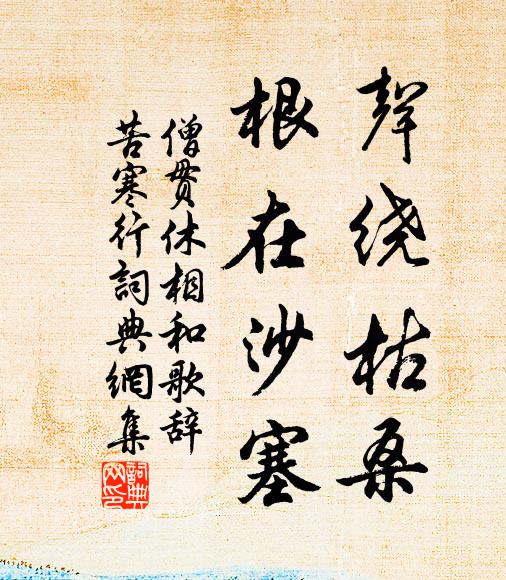 声绕枯桑
根在沙塞
僧贯休相和歌辞
苦寒行词典網集
詞典
网印